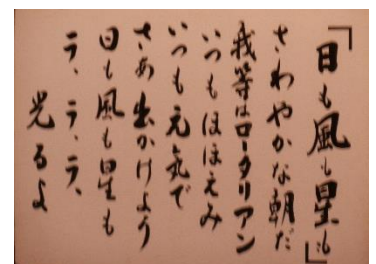 「日も風も星も」
さわやかな朝だ
我等はロータリアン
いつもほほえみ
いつも元気で
さあ出かけよう
日も風も星も
ラ、ラ、ラ、
光るよ